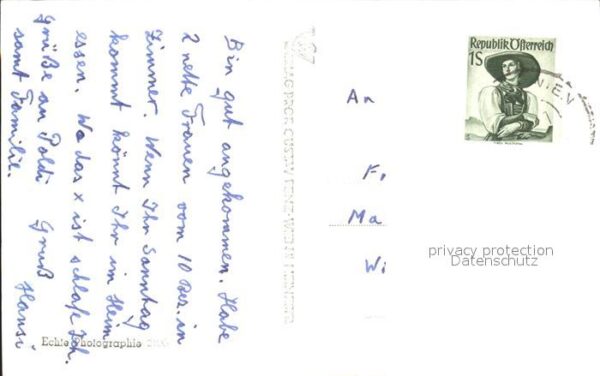 Bin gut angekommen. Habe
2 nette Frauen vom 10 Bez. in
Zimmer. Wenn Ihr Sonntag
kommt könnt Ihr im Heim
essen. Wo das x ist schlafe Ich.
Grüße an Poldi Gruß Hansi
samt Familie.
Echte Photographie
Republik Österreich
1S
WIEN
An
F,
Ma
Wi
privacy protection
Datenschutz